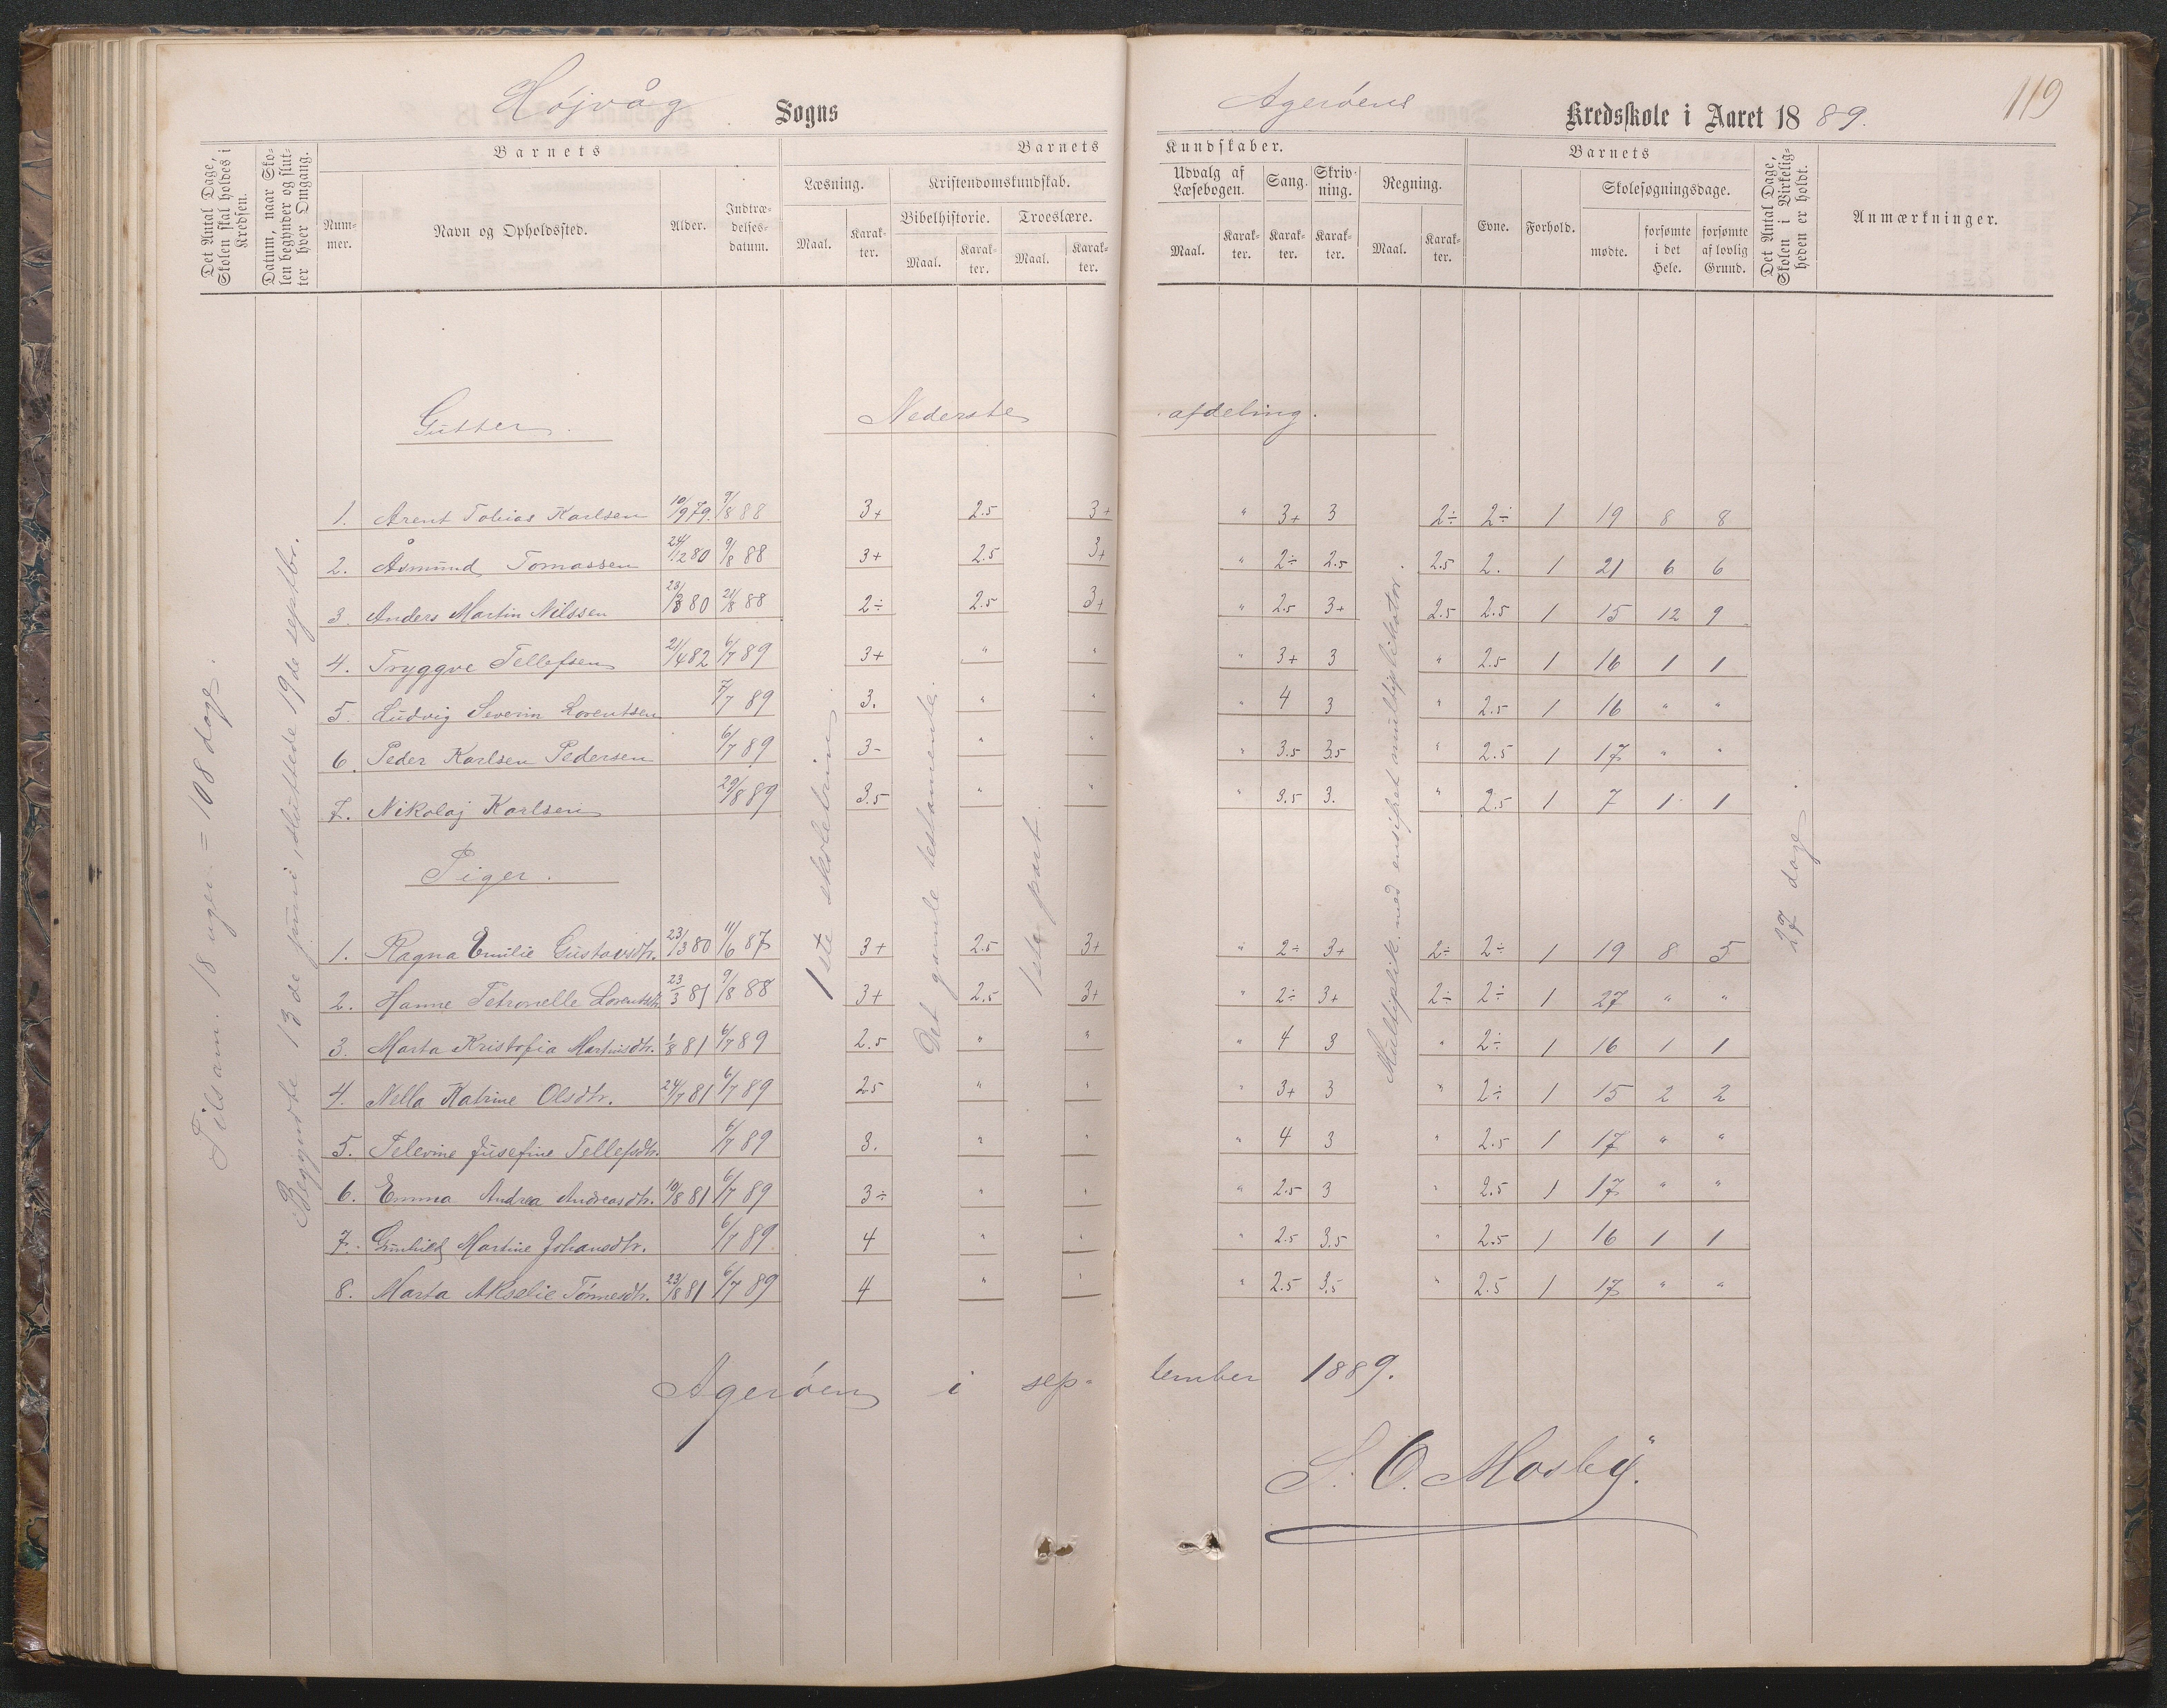 Højvåg Sogns Agerøens Kredsskole i Aaret 1889. 119
Det Antal Dage, Skolen skal holdes i Kredsen.
Datum, naar Skolen begynder og slutter hver Omgang.
Barnets
Nummer.
Navn og Opholdssted.
Alder.
Indtrædelsesdatum.
Barnets Kundskaber.
Læsning.
Maal. Karakter.
Kristendomskundskab.
Bibelhistorie.
Maal. Karakter.
Troeslære.
Maal. Karakter.
Udvalg af Læsebogen.
Maal. Karakter.
Sang.
Karakter.
Skrivning.
Karakter.
Regning.
Maal. Karakter.
Barnets
Evne.
Forhold.
Skolesøgningsdage.
mødte.
forsømte i det Hele.
forsømte af lovlig Grund.
Det Antal Dage, Skolen i Virkeligheden er holdt.
Anmærkninger.
Tilsam. 18 uger = 108 dage.
Begyndte 13de juni, sluttede 19de septbr.
1ste skoletrin
Det gamle testamente.
1ste part.
Multiplik. med ensifret multiplikator.
27 dage.
Gutter. Nederste afdeling.
1. Arent Tobias Karlsen 10/9 79. 9/8 88 3+ 2.5 3+ " 3+ 3 2÷ 2÷ 1 19 8 8
2. Åsmund Tomassen 24/12 80 9/8 88 3+ 2.5 3+ " 2÷ 2.5 2.5 2. 1 21 6 6
3. Anders Martin Nilssen 23/3 80 21/8 88 2÷ 2.5 3+ " 2.5 3+ 2.5 2.5 1 15 12 9
4. Tryggve Tellefsen 21/4 82 6/7 89 3+ " " " 3+ 3 " 2.5 1 16 1 1
5. Ludvig Severin Lorentsen 7/7 89 3. " " " 4 3 " 2.5 1 16 " "
6. Peder Karlsen Pedersen 6/7 89 3- " " " 3.5 3.5 " 2.5 1 17 " "
7. Nikolaj Karlsen 29/8 89 3.5 " " " 3.5 3. " 2.5 1 7 1 1
Piger.
1. Ragna Emilie Gustavsdtr. 23/3 80 11/6 87 3+ 2.5 3+ " 2÷ 3+ 2÷ 2÷ 1 19 8 5
2. Hanne Petronelle Lorentsdtr. 23/3 81 9/8 88 3+ 2.5 3+ " 2÷ 3+ 2÷ 2÷ 1 27 " "
3. Marta Kristofia Martinsdtr. 1/8 81 6/7 89 2.5 " " " 4 3 " 2÷ 1 16 1 1
4. Nella Katrine Olsdtr. 24/7 81 6/7 89 2.5 " " " 3+ 3 " 2÷ 1 15 2 2
5. Televine Jusefine Tellefsdtr. 6/7 89 3. " " " 4 3 " 2.5 1 17 " "
6. Emma Andrea Andreasdtr. 10/8 81 6/7 89 3÷ " " " 2.5 3 " 2.5 1 17 " "
7. Gunhild Martine Johansdtr. 6/7 89 4 " " " 2.5 3.5 " 2.5 1 16 1 1
8. Marta Akselie Tønnesdtr. 23/8 81 6/7 89 4 " " " 2.5 3.5 " 2.5 1 17 " "
Agerøen i september 1889.
S. O. Mosby.